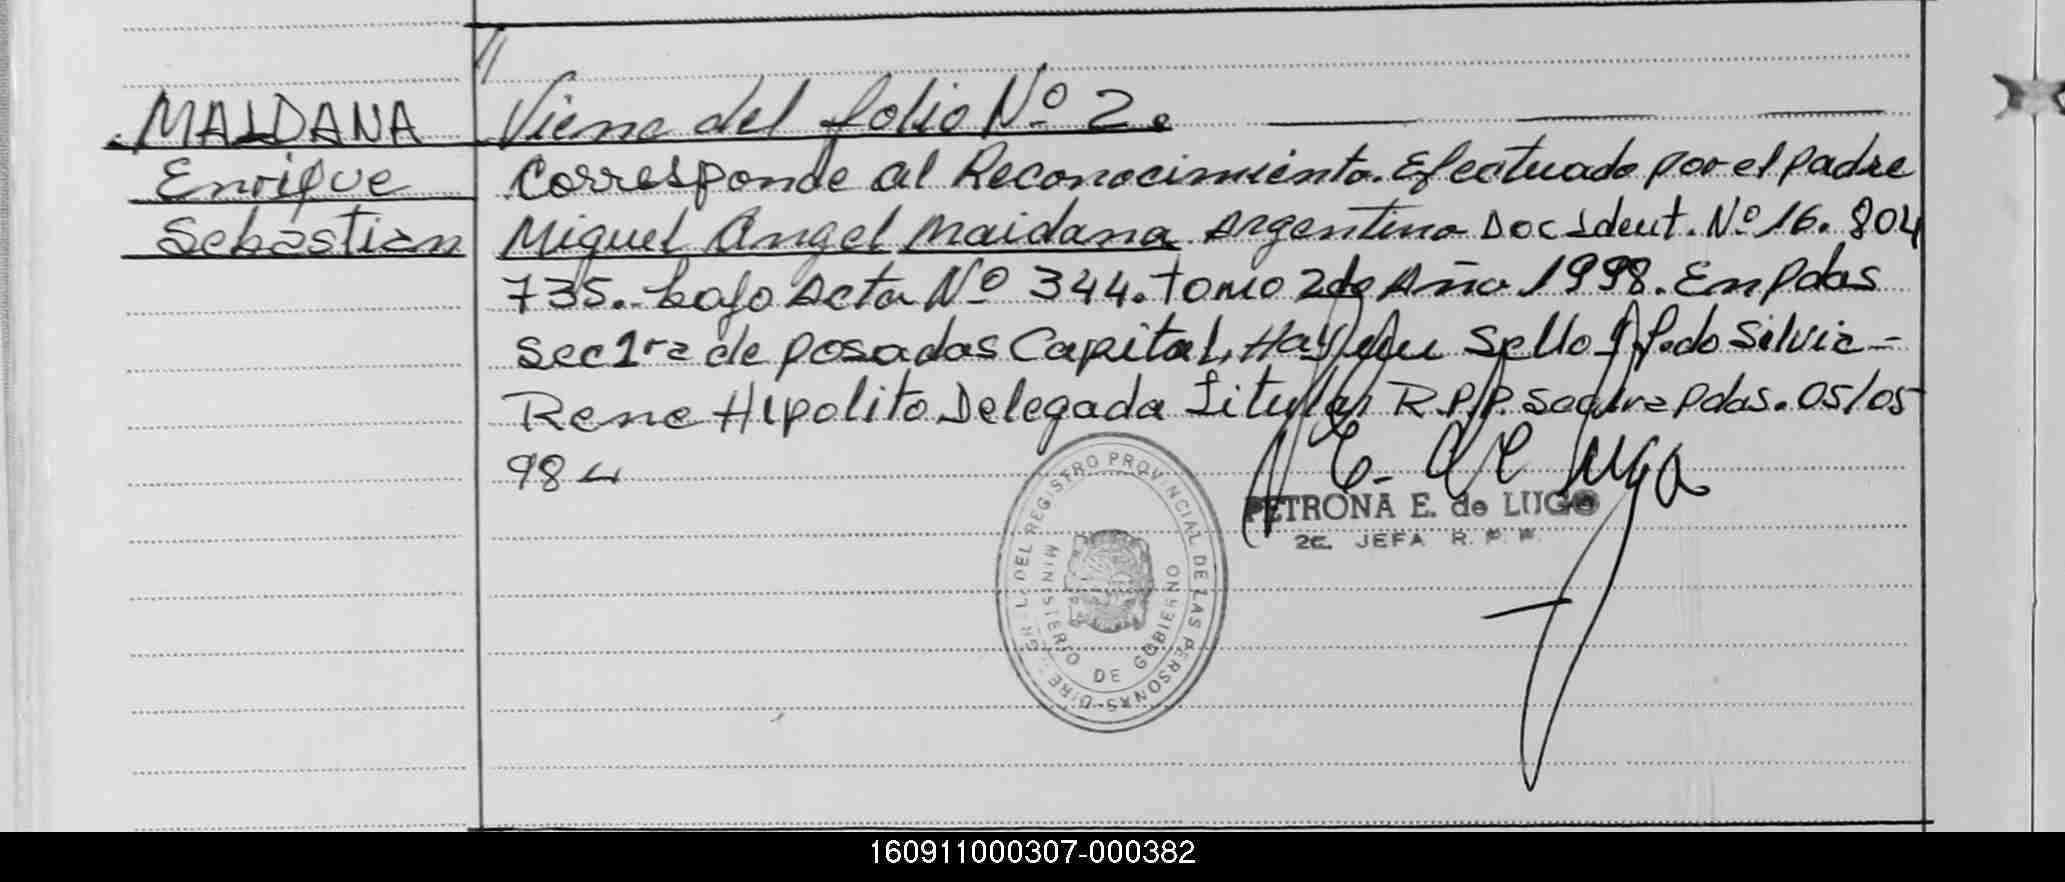 MAIDANA
Enrique
Sebastian
// Viene del folio Nº 2.
Corresponde al Reconocimiento. Efectuado por el padre
Miguel Angel Maidana Argentino Doc Ident. Nº 16. 804
735. bajo Acta Nº 344. Tomo 2do Año 1998. En Pdas
Sec 1ra de Posadas Capital, Hay un Sello y Fdo Silvia -
Rene Hipolito Delegada Titular R.P.P. Sec 1ra Pdas. 05/05
98
E. de Lugo
PETRONA E. de LUGO
2ª. JEFA R. P. P.
DIREC. GRAL. DEL REGISTRO PROVINCIAL DE LAS PERSONAS
MINISTERIO DE GOBIERNO
160911000307-000382